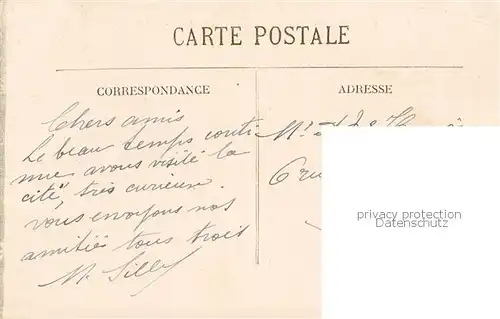 CARTE POSTALE
CORRESPONDANCE
ADRESSE
Chers amis
Le beau temps conti
nue avons visité la
cité, très curieux.
vous envoyons nos
amitiés tous trois
M. Silly
6 ru
privacy protection
Datenschutz